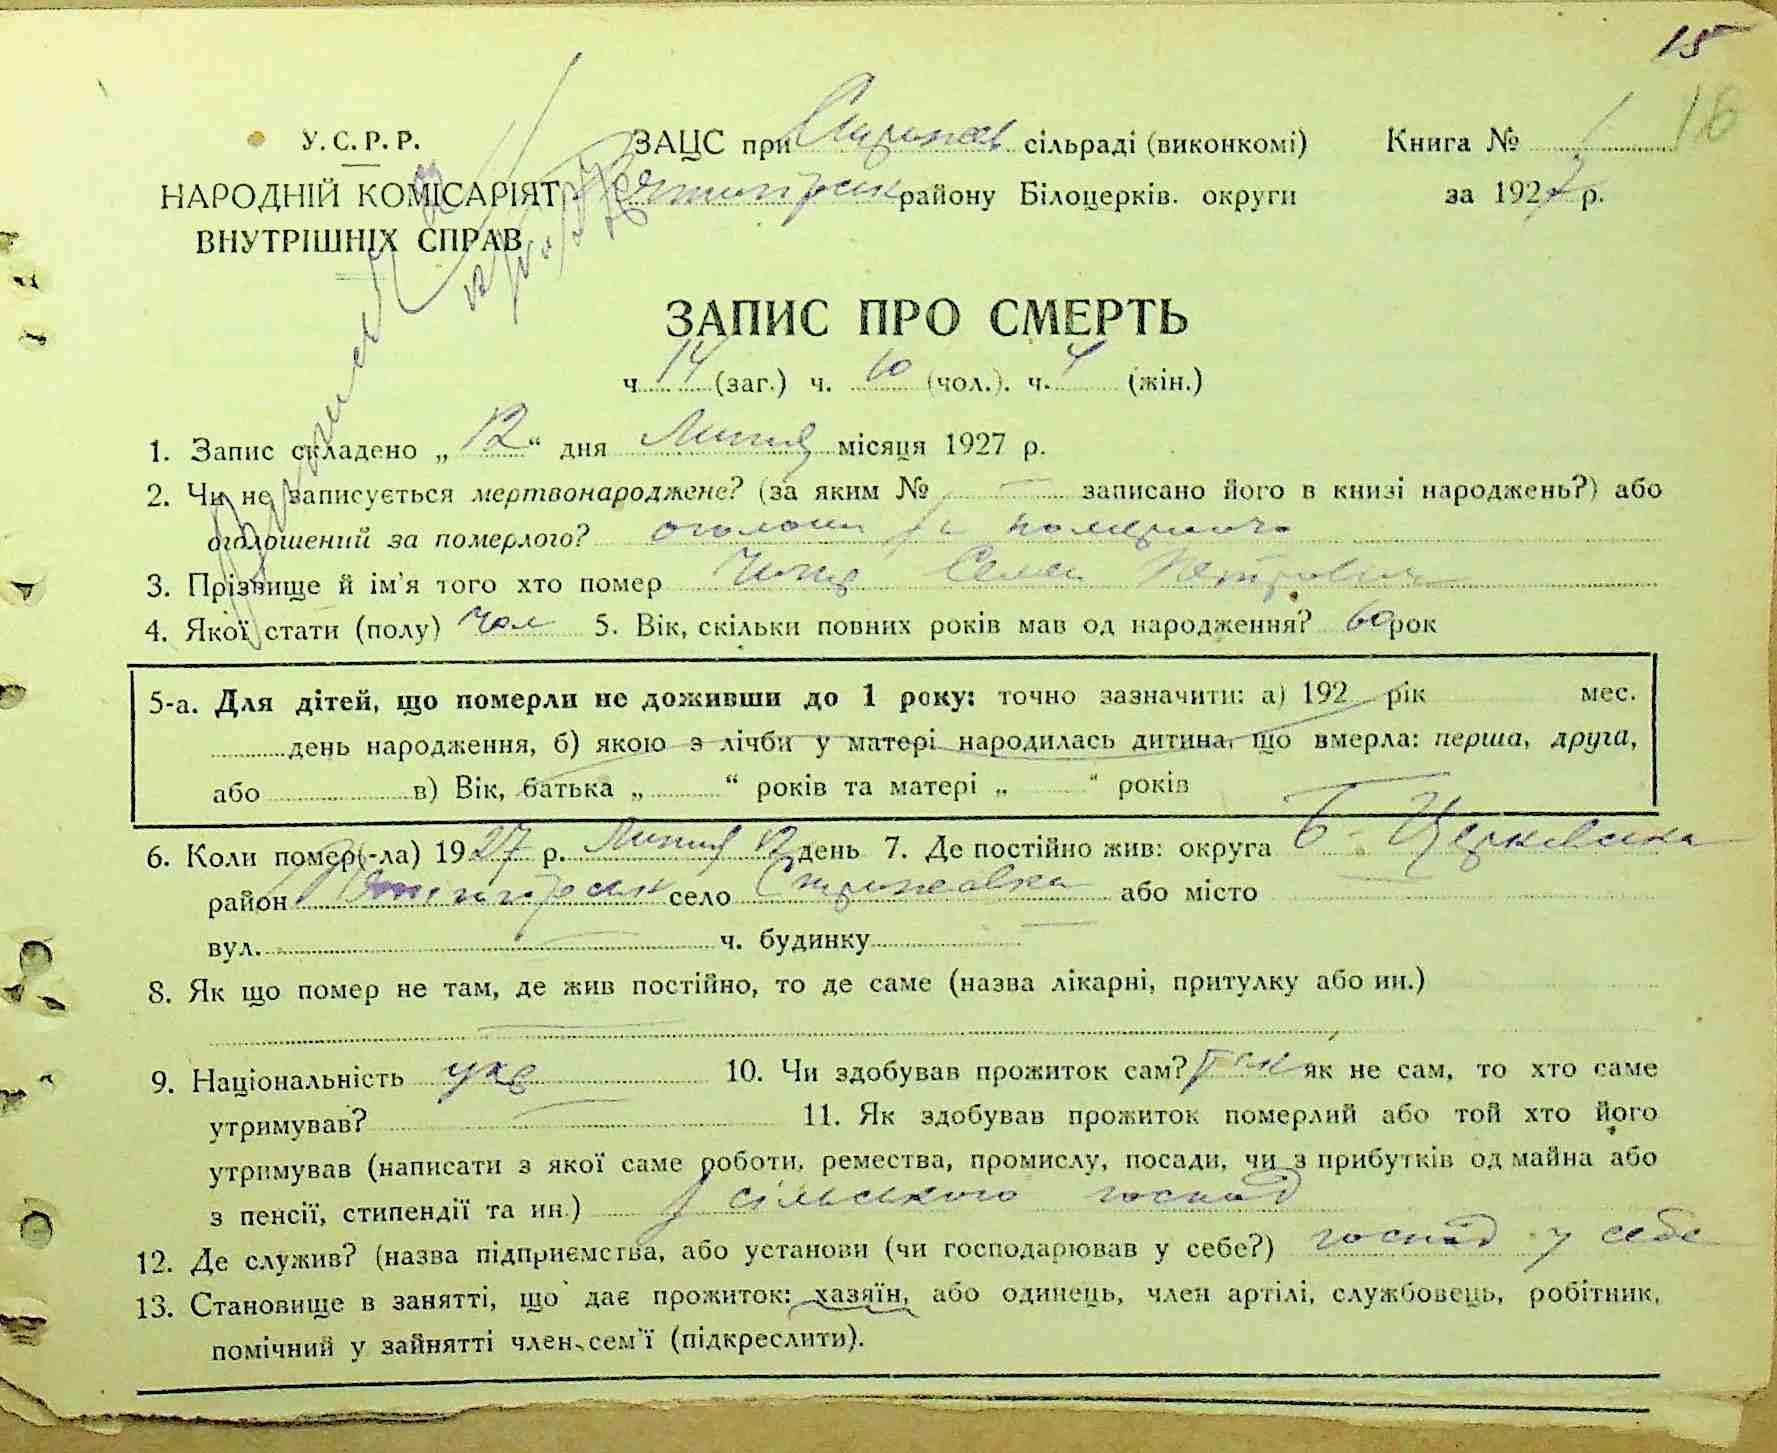 15
16
У.С.Р.Р.
НАРОДНІЙ КОМІСАРІЯТ
ВНУТРІШНІХ СПРАВ
ЗАЦС при сільраді (виконкомі)
району Білоцерків. округи
Книга № 1
за 1927 р.
ЗАПИС ПРО СМЕРТЬ
ч 14 (заг.) ч. 10 (чол.). ч. 4 (жін.)
1. Запис складено „ 12 “ дня Липня місяця 1927 р.
2. Чи не записується мертвонароджене? (за яким № — записано його в книзі народжень?) або
оголошений за померлого?
3. Прізвище й ім'я того хто помер Петрович
4. Якої стати (полу) Чол 5. Вік, скільки повних років мав од народження? 60 рок
5-а. Для дітей, що померли не доживши до 1 року: точно зазначити: а) 192 рік мес.
день народження, б) якою з лічби у матері народилась дитина, що вмерла: перша, друга,
або в) Вік, батька „ “ років та матері „ “ років
6. Коли помер(-ла) 1927 р. Липня 12 день 7. Де постійно жив: округа Б-Церківська
район село Стрижавка або місто
вул. ч. будинку
8. Як що помер не там, де жив постійно, то де саме (назва лікарні, притулку або ин.)
9. Національність укр 10. Чи здобував прожиток сам? так як не сам, то хто саме
утримував? 11. Як здобував прожиток померлий або той хто його
утримував (написати з якої саме роботи, ремества, промислу, посади, чи з прибутків од майна або
з пенсії, стипендії та ин.) з сільського господ
12. Де служив? (назва підприємства, або установи (чи господарював у себе?) господ у себе
13. Становище в занятті, що дає прожиток: хазяїн, або одинець, член артілі, службовець, робітник,
помічний у зайнятті член сем'ї (підкреслити).